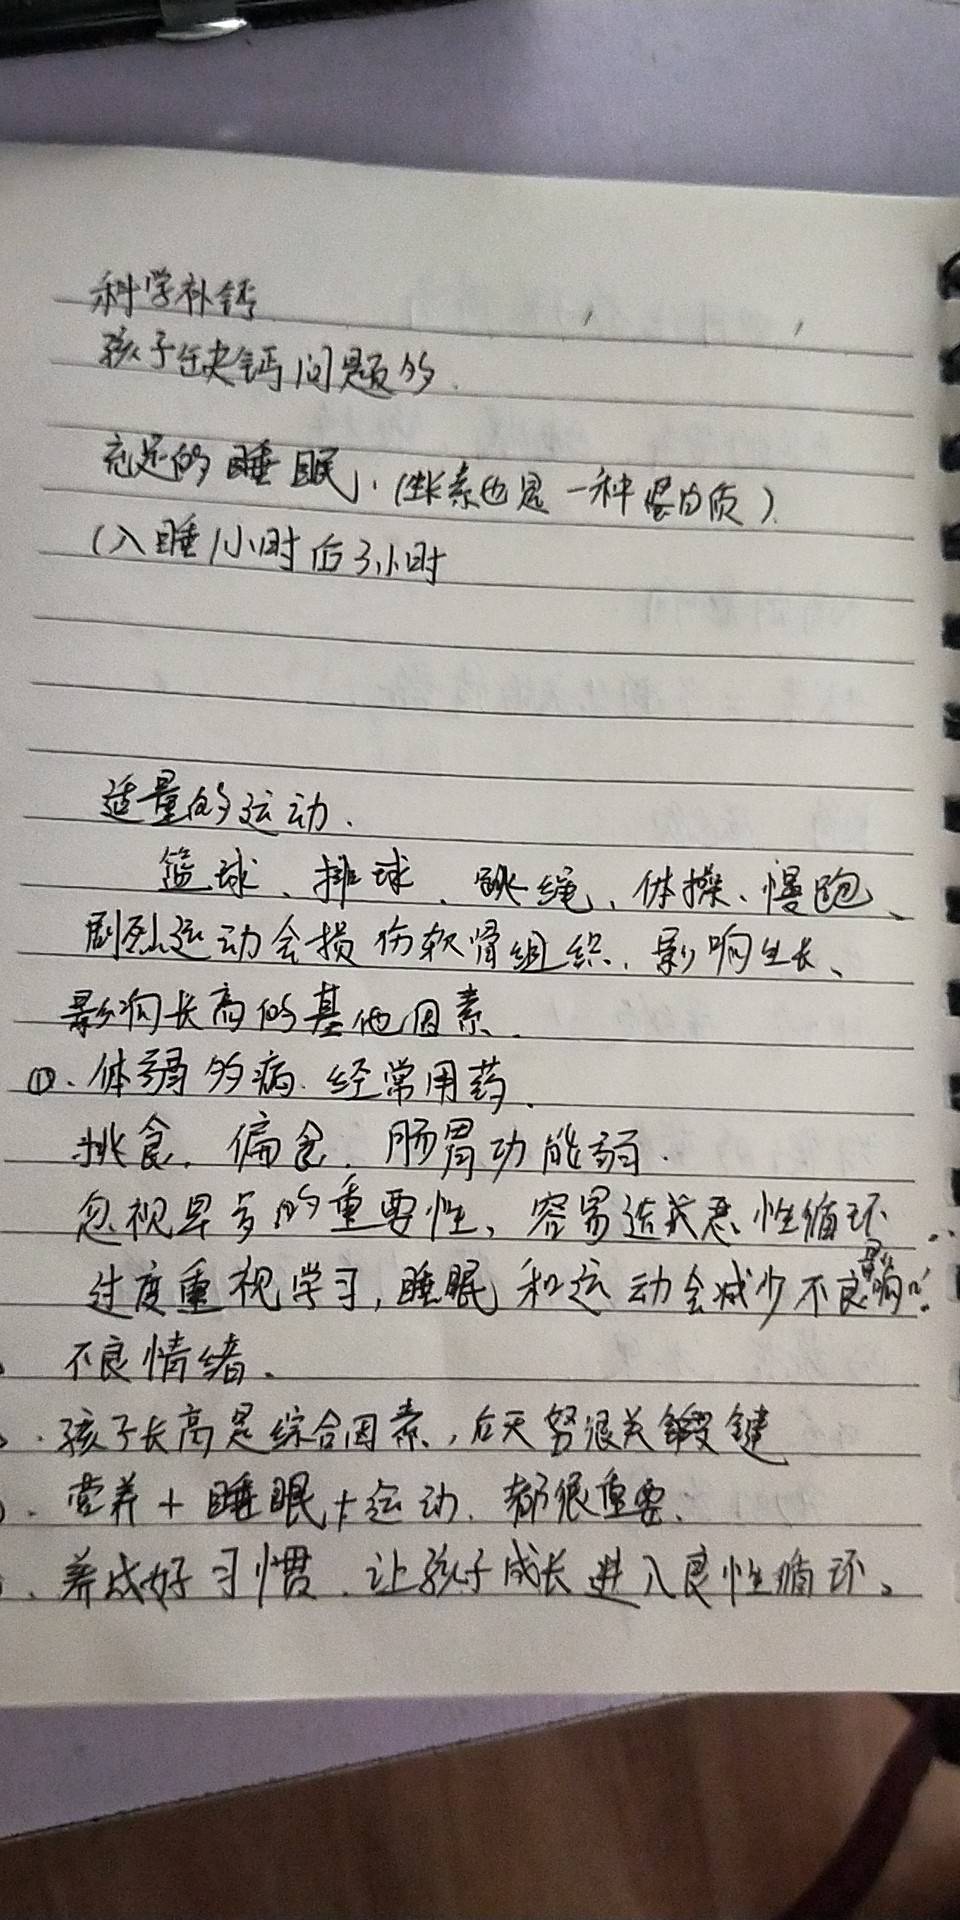 科学补钙
孩子缺钙问题的.
充足的睡眠,(生长素也是一种蛋白质)
(入睡1小时后3小时
适量的运动.
篮球、排球、跳绳、体操、慢跑、
剧烈运动会损伤软骨组织,影响生长、
影响长高的其他因素.
①.体弱多病.经常用药.
挑食.偏食.肠胃功能弱.
忽视早of的重要性、容易造成恶性循环
过度重视学习,睡眠和运动会减少不良影响!
不良情绪.
.孩子长高是综合因素,后天努很关键
.营养+睡眠+运动.都很重要.
.养成好习惯.让孩子成长进入良性循环。